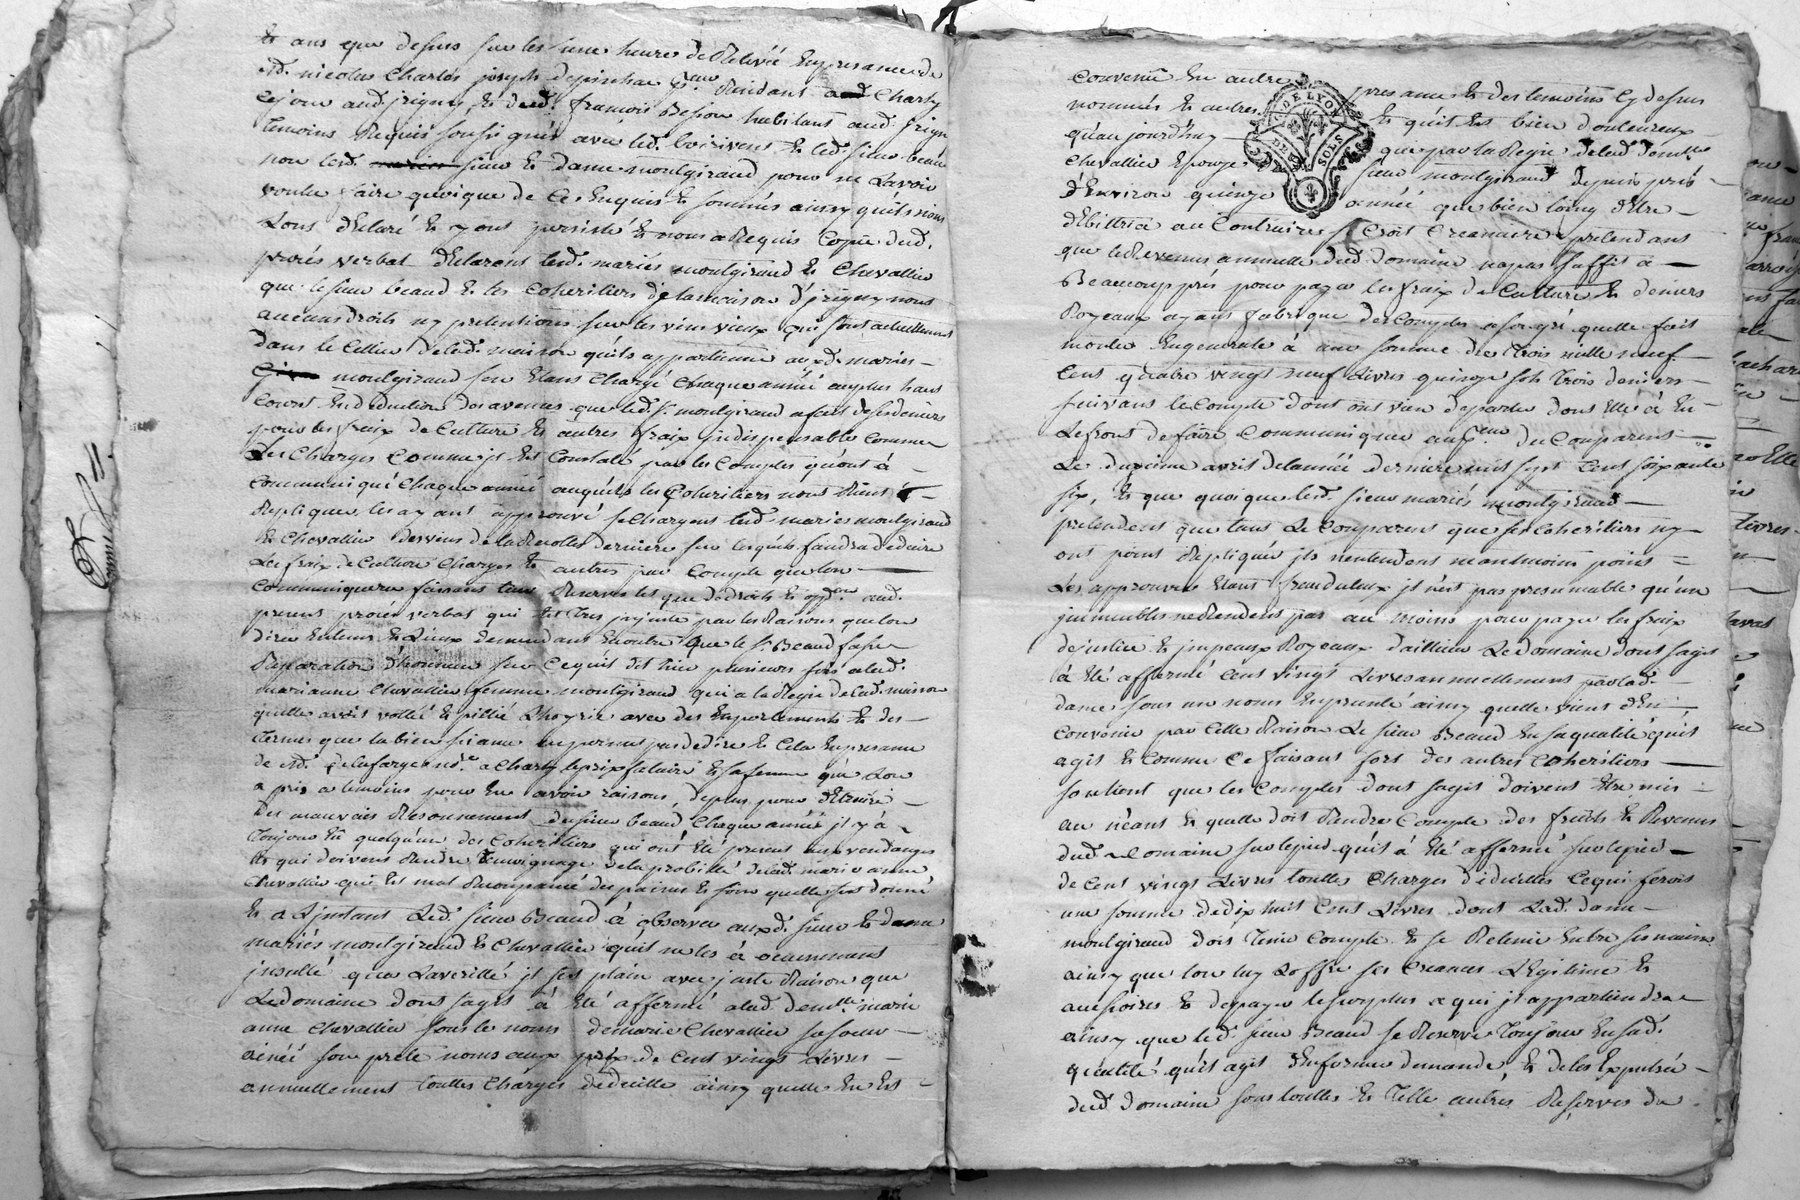 Et ans que dessus sur les une heure de Relevée En presance de
nicolas Charles joseph Rendant a Charly
françois Besson habitant aud jrigny
temoins Requis soussignés avec led. et led. sieur beau
non led. sieur Et dame montgiraud pour ne Lavoir
voulu faire quoique de Ce Enquis Et sommés ainsy quils nous
Lont déclaré Et y ont persisté Et nous a Requis Copie dud.
procés verbal déclarent led. mariés montgiraud Et Chevallier
que le sieur beaud Et les Coheritiers de la maison d'jrigny nont
aucuns droits ny pretentions sur les vins vieux qui sont actuellement
dans le Cellier de lad. maison qu'ils appartienne aux d. mariés
montgiraud sen Etant Chargé Chaque année au plus haut
Cours En deduction des avences que led. s. montgiraud a fait de ses deniers
pour les fraix de Culture Et autres fraix jndispensable Comme
Les Charges Comme jl Est Constaté par les Comptes qu'ont á
Communiqué Chaque année auquels les Coheritiers nont Rient
Repliqué les ayant approuvé se Chargent led. mariés montgiraud
Et Chevallier des vins de la Recolte derniere sur lesquels faudra deduire
Les fraix de Culture Charges Et autres par Compte que lon
Communiquera faisant Reserves les que de droits aud.
present procés verbal qui Est tres jnjuste par les Raisons que lon
dira En tems Et Lieux demendant En outre que le s. Beaud fasse
Reparation d'honneur sur Ce qu'il dit hier plusieurs fois a lad.
marianne Chevallier femme montgiraud qui a la Regie de lad. maison
qu'elle avoit vollé Et pillié L'hoyrie avec des Emportements Et des
termes que la bien seance ne permet pas de dire Et Cela En presance
de Md. delafarge nore. a Charly Et sa femme que Lon
a pris a temoins pour En avoir raison, deplus pour détruire
Des mauvais Resonnement du sieur beaud Chaque année jl y á
toujour Eu quelqu'un des Coheritiers qui ont Eté present aux vendanges
Et qui doivent Rendre temoignage de la probitté de lad. marie anne
Chevallier qui Est mal Recompansé des peines Et soins quelle sest donné
Et a Ljnstant Led. sieur Beaud á observer aux d. sieur Et dame
mariés montgiraud Et Chevallier qu'il ne les á aucunement
jnsulté que La verité jl sest plain avec juste Raison que
Le domaine dont sagit á Eté affermé a lad. demlle. marie
anne Chevallier sous le nom de marie Chevallier sa soeur
ainée son prete noms aux prix de Cent vingt Livres
annuellement touttes Charges déduitte ainsy quelle En Est
Convenü En autre presance Et des temoins Cy dessus
nommés Et autres Et qu'il Est bien douloureux
qu'au jourd'huy que par la Regie de lad. demlle.
Chevallier Epouze sieur montgiraud depuis prés
d'Environ quinze année que bien loing d'Etre
débittrice au Contraire se Croit Creanciere pretendant
que le Revenus annuelle dud. domaine na pas suffit á
Beaucoup prés pour payer les fraix de Culture Et deniers
Royeaux ayant fabrique des Comptes a son gré quelle fait
monter En generale á une somme de trois mille neuf
Cent quatre vingt neuf Livres quinze sols trois deniers
suivant le Compte dont ont vien de parler dont Elle á Eu
Le front de faire Communiquer du Comparent
Le deuxieme avril de lannée derniere mil sept Cent soixante
six, Et que quoique led. sieur mariés montgiraud
pretendent que tant Le Comparent que ses Coheritiers ny
ont point Repliqué jls nentendent neantmoins point
Les approuver Etant frauduleux jl n'est pas presumable qu'un
jmmeubles ne Rendent pas au moins pour payer les fraix
de justice Et jmpeaux Royeaux d'ailleurs Le domaine dont sagit
á Eté affermé Cent vingt Livres annuellement par lad.
dame sous un noms Emprunté ainsy quelle vient d'En
Convenir par Cette Raison Le sieur Beaud En sa qualité qu'il
agit Et Comme Ce faisant fort des autres Coheritiers
soutient que les Comptes dont sagit doivent Etre mis
au néant Et quelle doit Rendre Compte des fruits Et Revenus
dud. Domaine sur le pied qu'il á Eté affermé sur le pied
de Cent vingt Livres touttes Charges déduittes Ce qui feroit
une somme de dix huit Cent Livres dont Lad. dame
montgiraud doit tenir Compte Et se Retenir Entre ses mains
ainsy que lon luy L'offre ses Creances L'Egitime Et
accessoires Et de payer le surplus a qui jl appartiendra
ainsy que led. sieur Beaud se Reserve toujour En sad.
qualité qu'il agit d'En former demande, Et de les Expulsée
dud. Domaine sous touttes Et telle autres Reserves de
G. DE LYON
DEUX SOLS